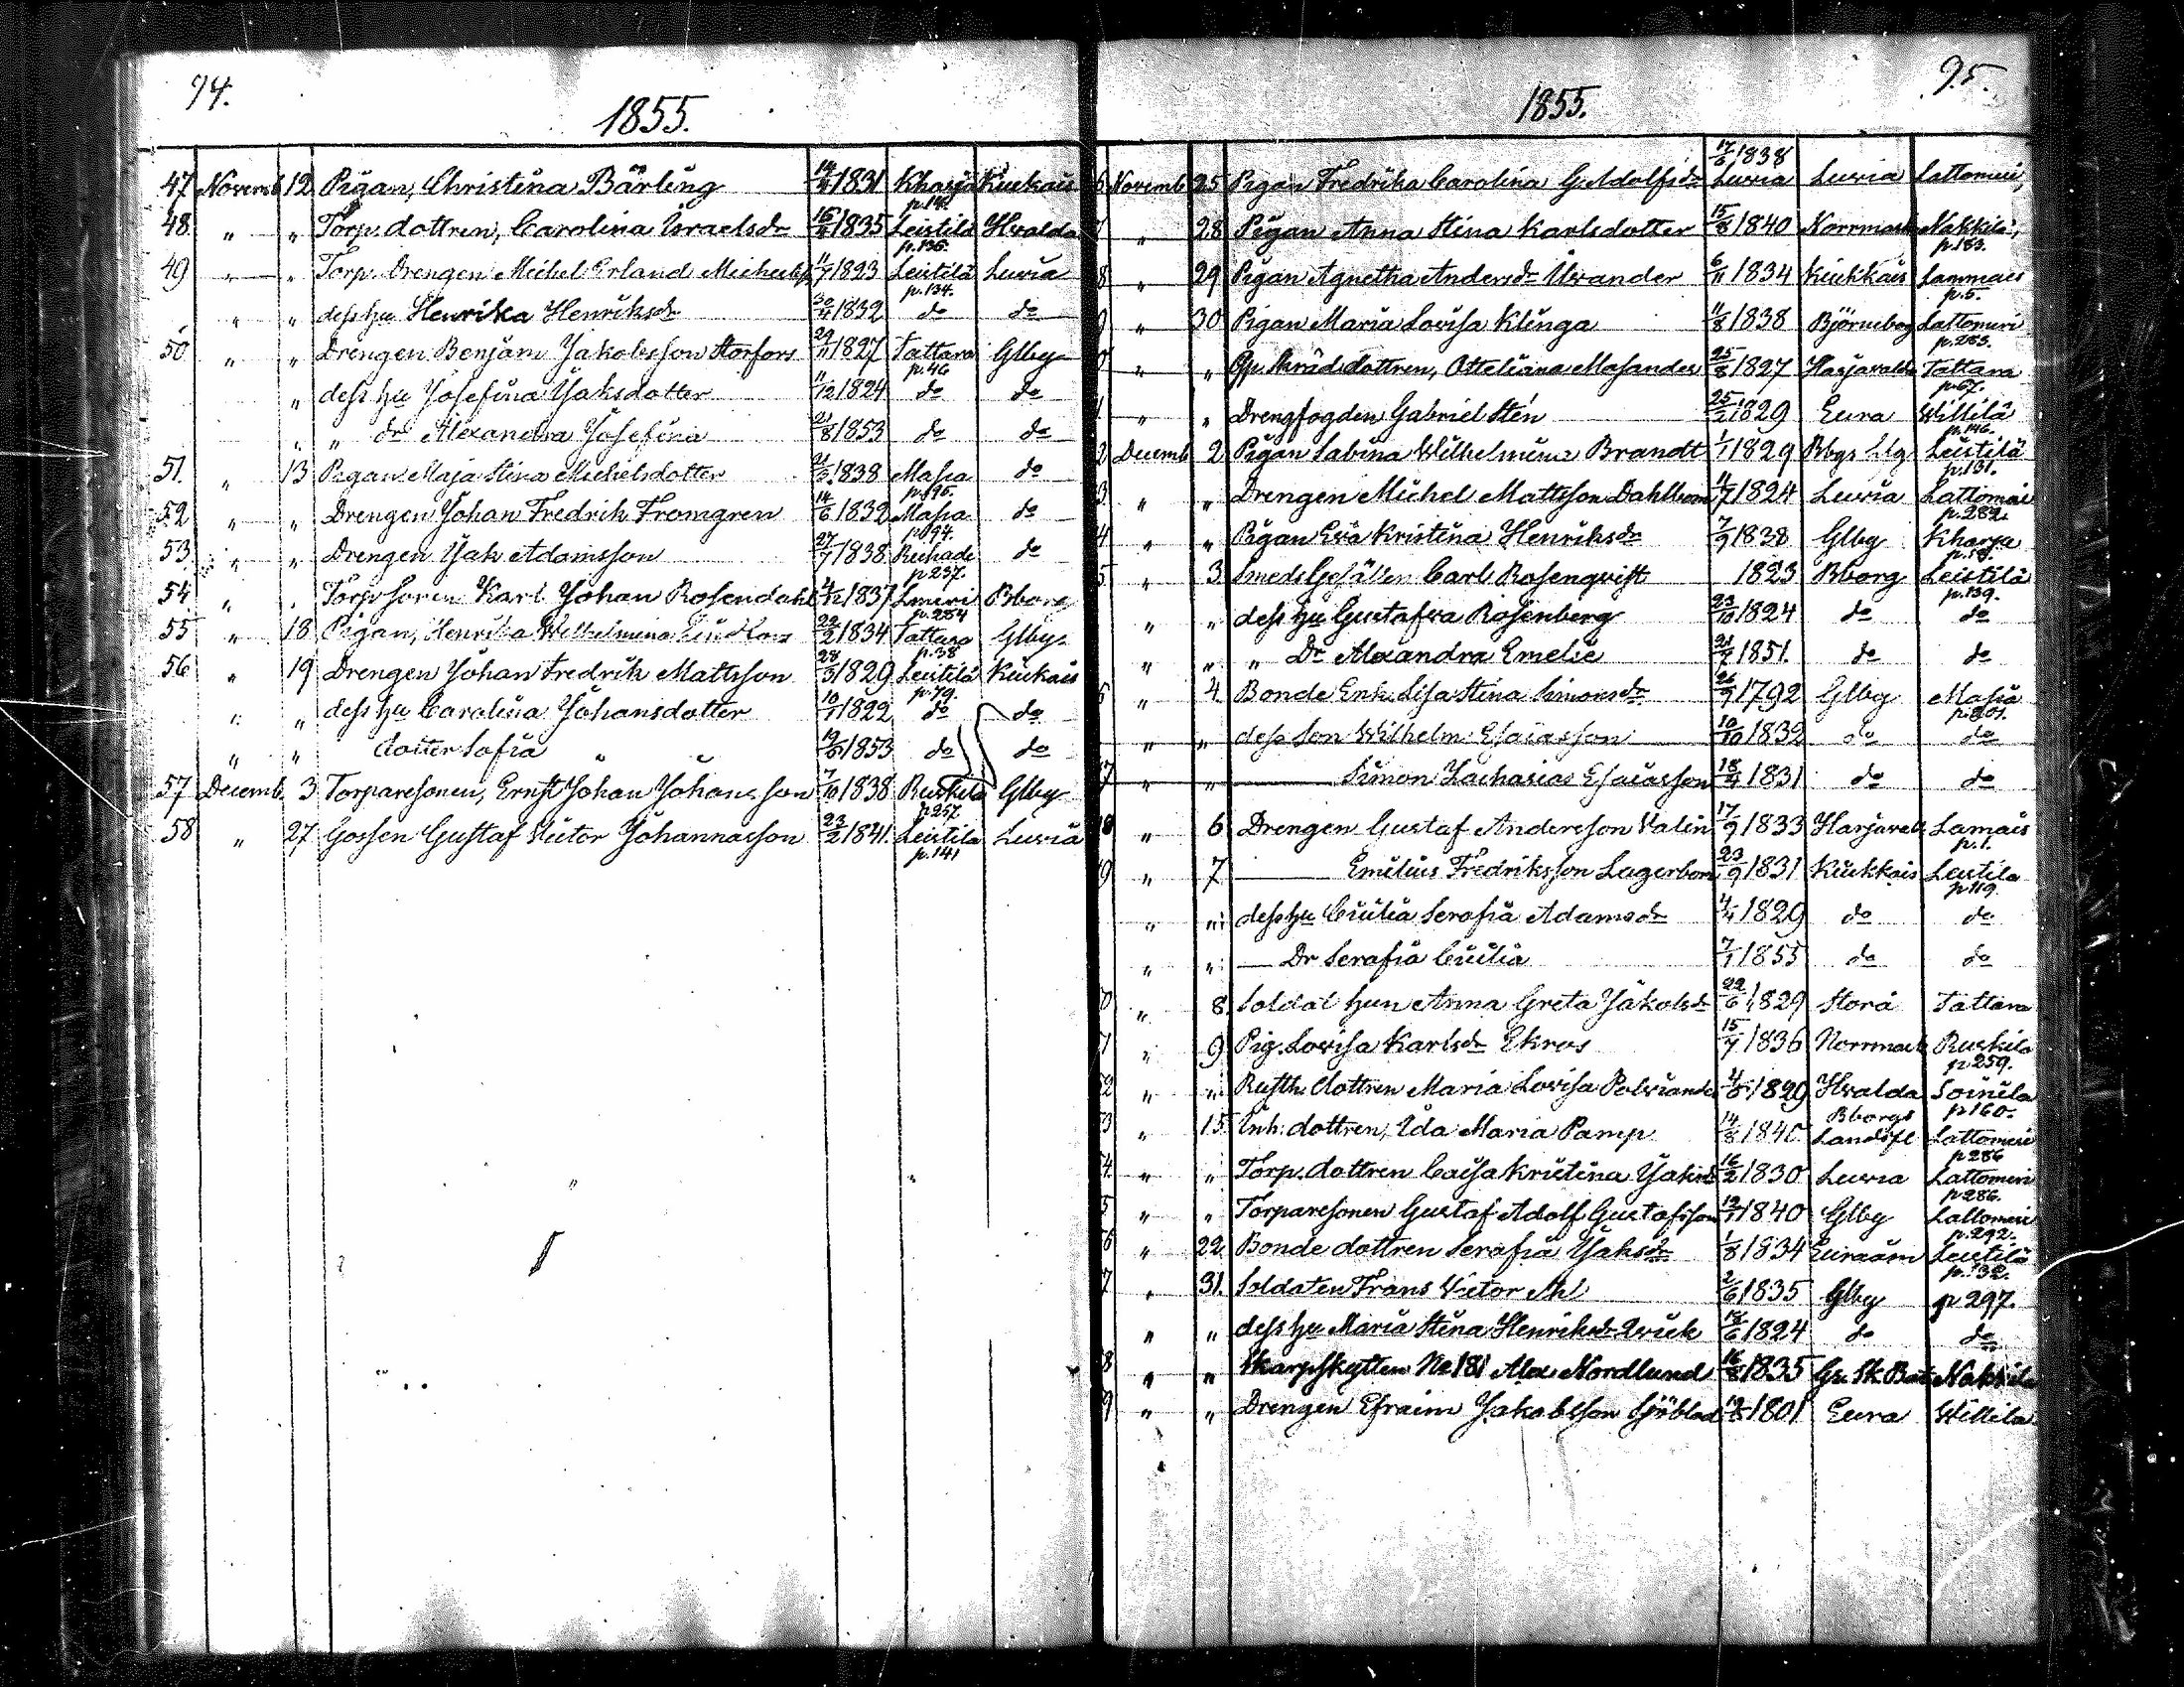 94.
1855.
47 Novemb 12 Pigan, Christina Bärling 1831 Kharja Kiukais
p. 148.
48 " " Torp. dottren, Carolina Israelsdr 16/11 1835 Leistilä Hvalda
p. 135.
49 " " Torp. Drengen Michel Erland Michelss 11/7 1823 Leistilä Luvia
p. 134.
" " dess hu Henrika Henriksdr 30/11 1832 do do
50 " " Drengen Benjam Jakobsson Storfors 29/11 1827 Tattara Glby
p. 46
" dess hu Josefina Jaksdotter 11/12 1824 do do
" " dr Alexandra Josefina 21/8 1853 do do
51. " 13 Pigan Maja Stina Michelsdotter 1838 Masia do
p. 195.
52 " " Drengen Johan Fredrik Fromgren 14/6 1832 Masia do
p. 194.
53 " " Drengen Jak Adamsson 27/7 1838 do
p 237.
54 " " Torp sonen Karl Johan Rosendahl 4/12 1837 Lmeri Bborg
p. 284
55 " 18 Pigan, Henrika Wilhelmina 22/2 1834 Tattara Glby
p. 38
56 " 19 Drengen Johan Fredrik Mattsson 28/3 1829 Leistilä Kiukais
p. 79.
" " dess hu Carolina Johansdotter 10/7 1822 do do
" " dotter Sofia " 1853 do do
57 Decemb. 3 Torparesonen, Ernst Johan Johansson 7/10 1838 Ruskila Glby
p 257
58 " 27 Gossen Gustaf Victor Johannasson 23/2 1841. Leistila Luvia
p. 141
95.
1855.
6 Novemb 25 Pigan Fredrika Carolina G. Adolfsdr 17/6 1838 Luvia Luvia Lattomeri,
7 " 28 Pigan Anna Stina Karlsdotter 15/8 1840 Norrmark Nakkila,
p. 183.
8 " 29 Pigan Agnetha Andersdr Uvander 6/11 1834 Kiukkais Lammais
p. 5.
9 " 30 Pigan Maria Lovisa Klinga 11/8 1838 Björneborg Lattomeri
p. 283.
0 " " dottren, Otteliana Masander 25/8 1827 Harjavalda Tattara
p. 67.
1 " " Drengfogden Gabriel Stén 25/2 1829 Eura Willilä
p. 146.
2 Decemb 2 Pigan Sabina Wilhelmina Brandt 1/1 1829 Bbgs Leistilä
p. 131.
3 " " Drengen Michel Mattsson Dahlbom 4/7 1824 Luvia Lattomäi
p. 282.
4 " " Pigan Eva Kristina Henriksdr 7/9 1838 Glby Kharja
5 " 3 Smeds Gesällen Carl Rosenqvist 1823 Bborg Leistilä
p. 139.
" " dess hu Gustafva Rosenberg 23/10 1824 do do
" " " Dr Alexandra Emelie 21/7 1851. do do
6 " 4 Bonde Enk. Lisa Stina Simonsdr 26/9 1792 Glby Masia
p. 201.
" " dess Son Wilhelm Esaiasson 10/10 1832 do do
7 " " Simon Zacharias Esaiasson 18/4 1831 do do
18 " 6 Drengen Gustaf Andersson Valin 17/9 1833 Harjavalt Lamais
p. 1.
9 " 7 Emilius Fredriksson Lagerbom 23/9 1831 Kiukkais Leistila
p. 119.
" " dess hu Cecilia Serafia Adamsdr 4/4 1829 do do
" " Dr Serafia Cecilia 7/1 1855 do do
0 " 8. Soldat hun Anna Greta Jakobsdr 22/6 1829 Storå Tattara
1 " 9 Pig. Lovisa Karlsdr Ekroos 15/7 1836 Norrmark Ruskila
p. 259.
2 " " Rusth. dottren Maria Lovisa Polviander 4/8 1829 Hvalda Soinila
p 160.
3 " 15 Inh. dottren, Ida Maria Pamp 14/8 1840 Bborgs Landsfl Lattomeri
p 286
4 " " Torp. dottren Caisa Kristina Jaksdr 16/2 1830 Luvia Lattomeri
p. 286.
5 " " Torparesonen Gustaf Adolf Gustafsson 1840 Glby Lattomeri
p. 292.
6 " 22 Bonde dottren Serafia Jaksdr 1/8 1834 Euraåm Leistilä
p. 132.
7 " 31. Soldaten Frans Victor Ahl 2/6 1835 Glby p 297.
" " dess hu Maria Stina Henriksdr Qvick 1824 do do
8 " " Skarpskytten No 181 Alex Nordlund 16/8 1835 Gr. Sk. Bat Nakkila
9 " " Drengen Efraim Jakobsson Sjöblad 1801 Eura Willila